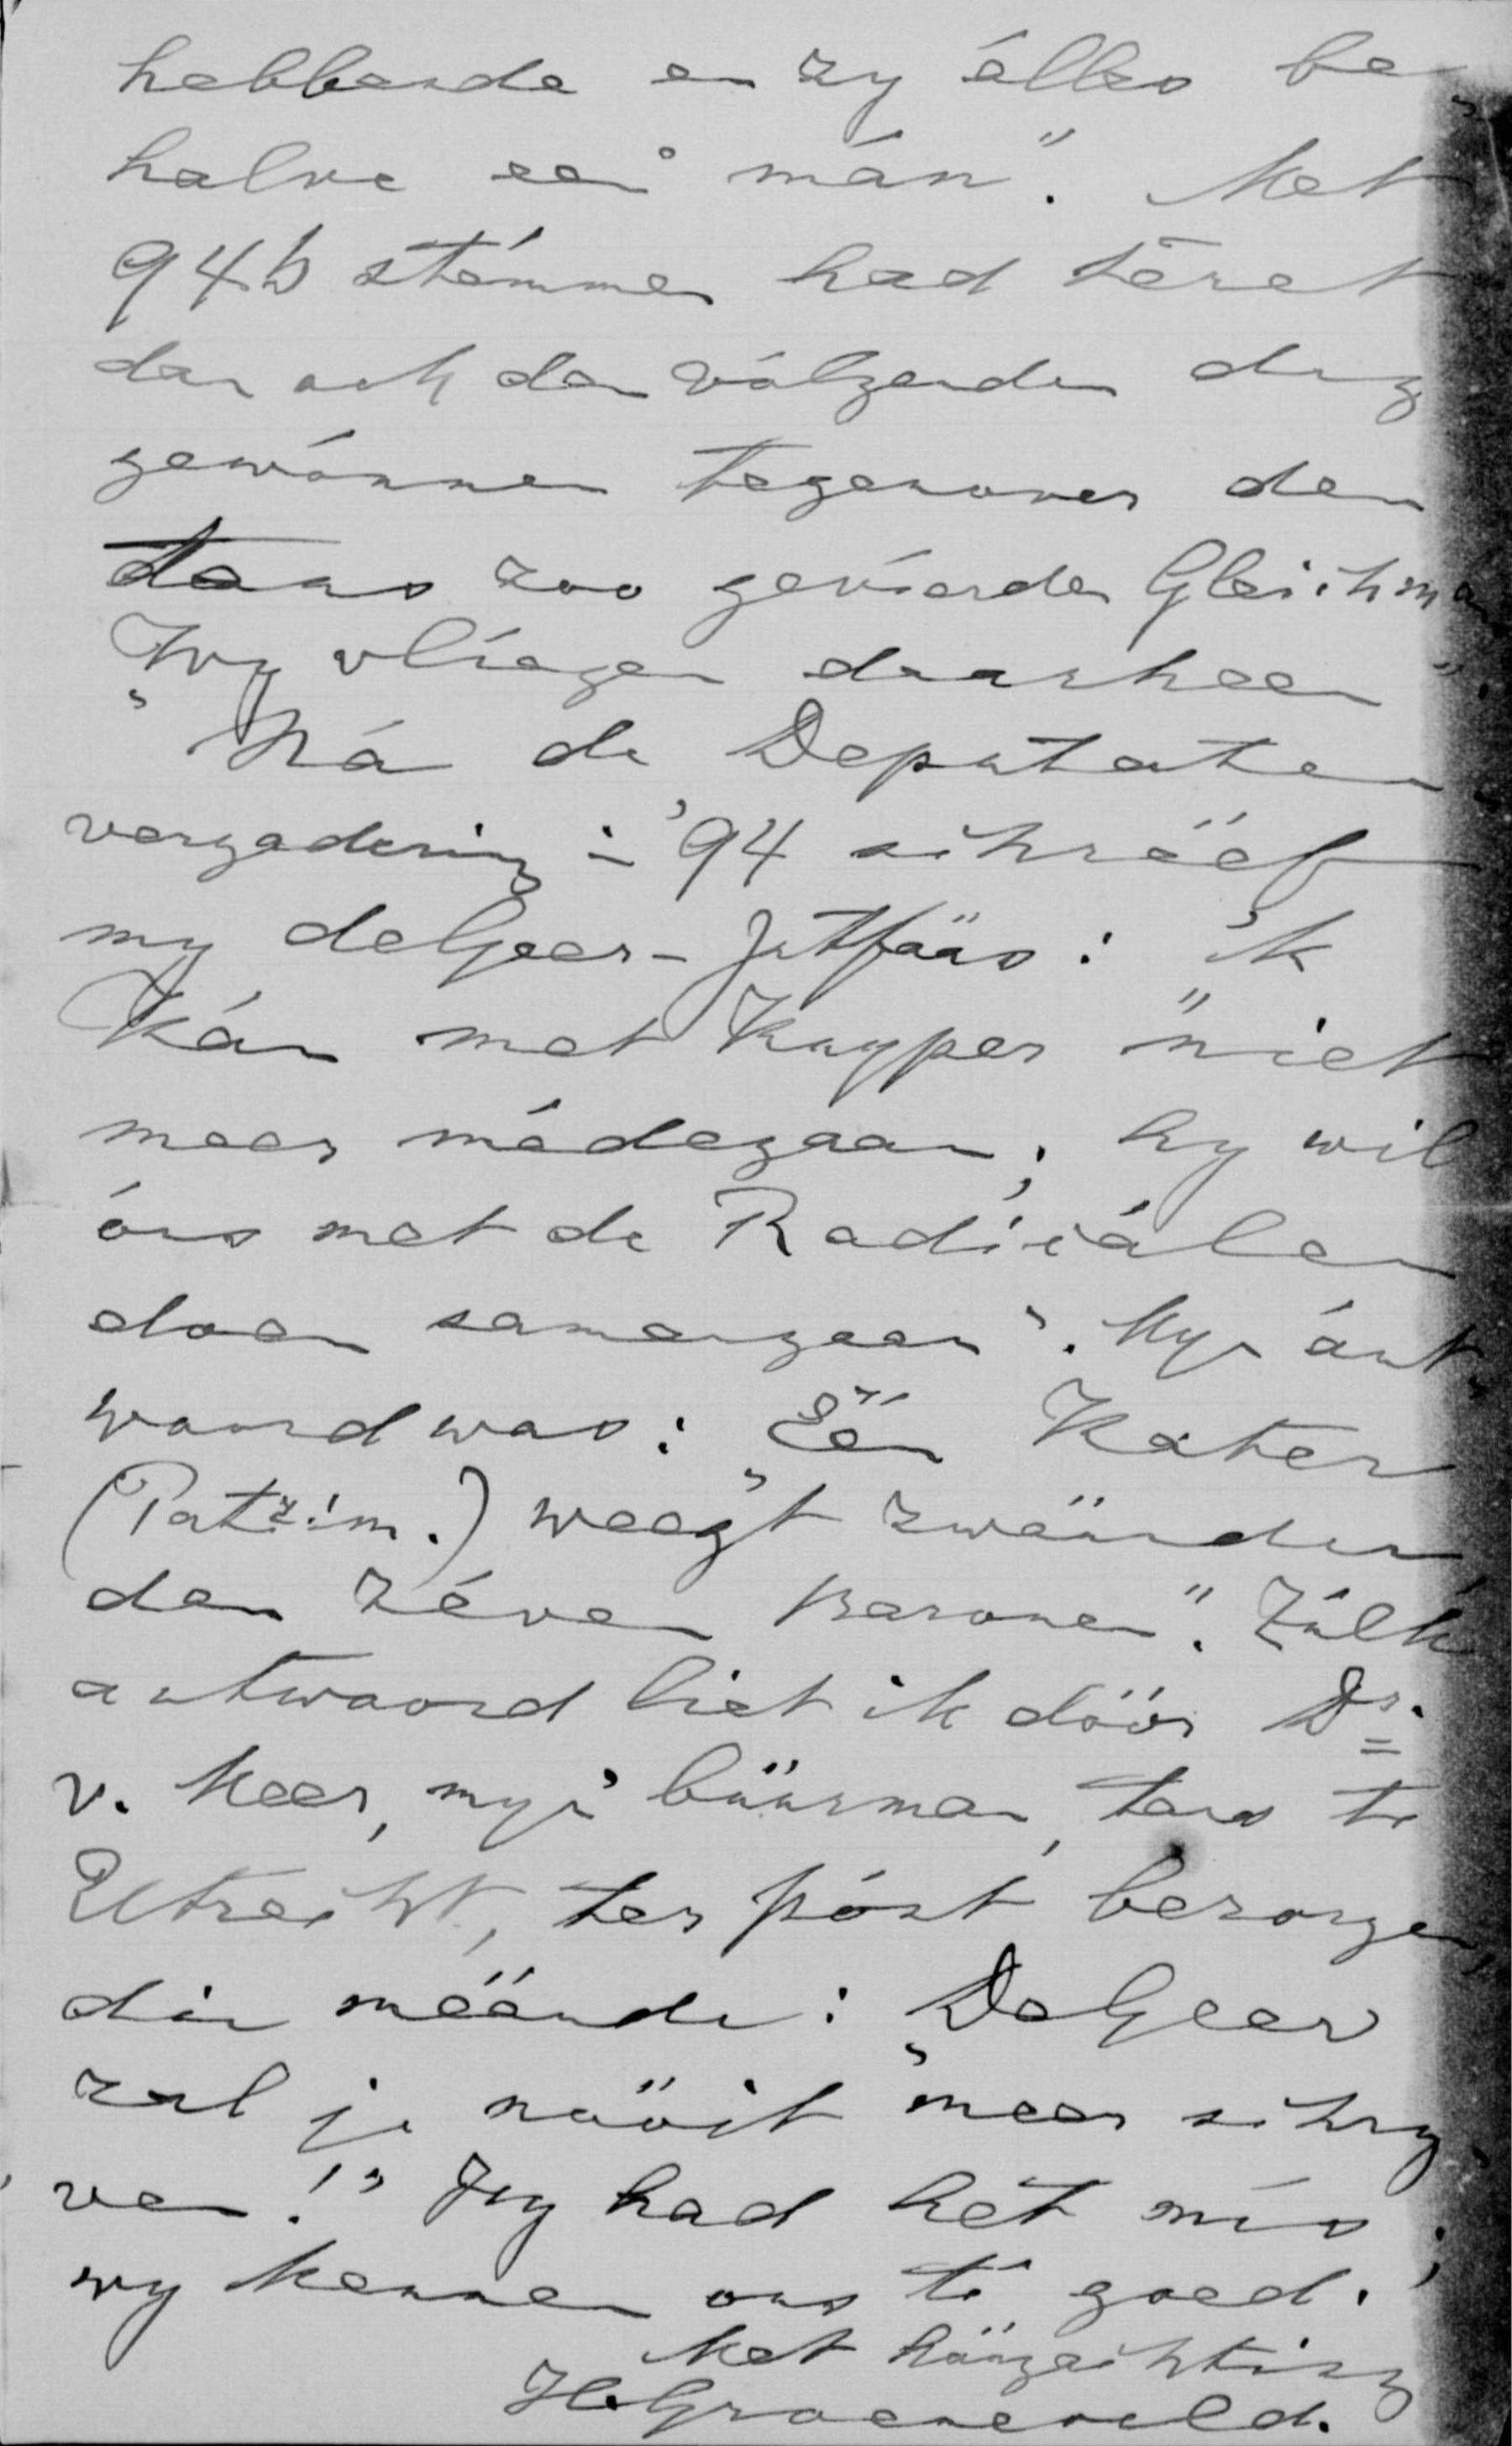 hebbende en zy álles be„
halve een mán". Met
946 stémmen had téret
dan ook den vólgenden dag
gewónnen tegenover den
tans zoo gevíerden Gleichman
„Wy vlíegen daarheen".
Ná de Deputaten
vergadering in '94 schrééf
my deGeer-Jutfáás: „ik
kán met Kuyper níet
meer médegaan; hy wil
óns met de Radicálen
doen samengaan". Myn ánt„
woord was: „Eén Kater
(Patrim.) weegt zwáárder
dan zéven Baronen". Zúlk
antwoord liet ik dóór Dr.
v. Meer, myn búúrman, tans te
Utrecht, ter póst bezorgen,
die méénde: „DeGeer
zal je nóóit meer schry
ven!" Hy had hét mís;
wy kennen ons té goed.
Met hóógachting
H. Groeneveld.